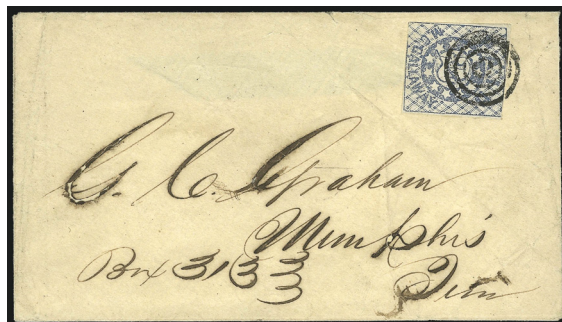 G. C. Graham
Memphis
Box 3133
Tenn